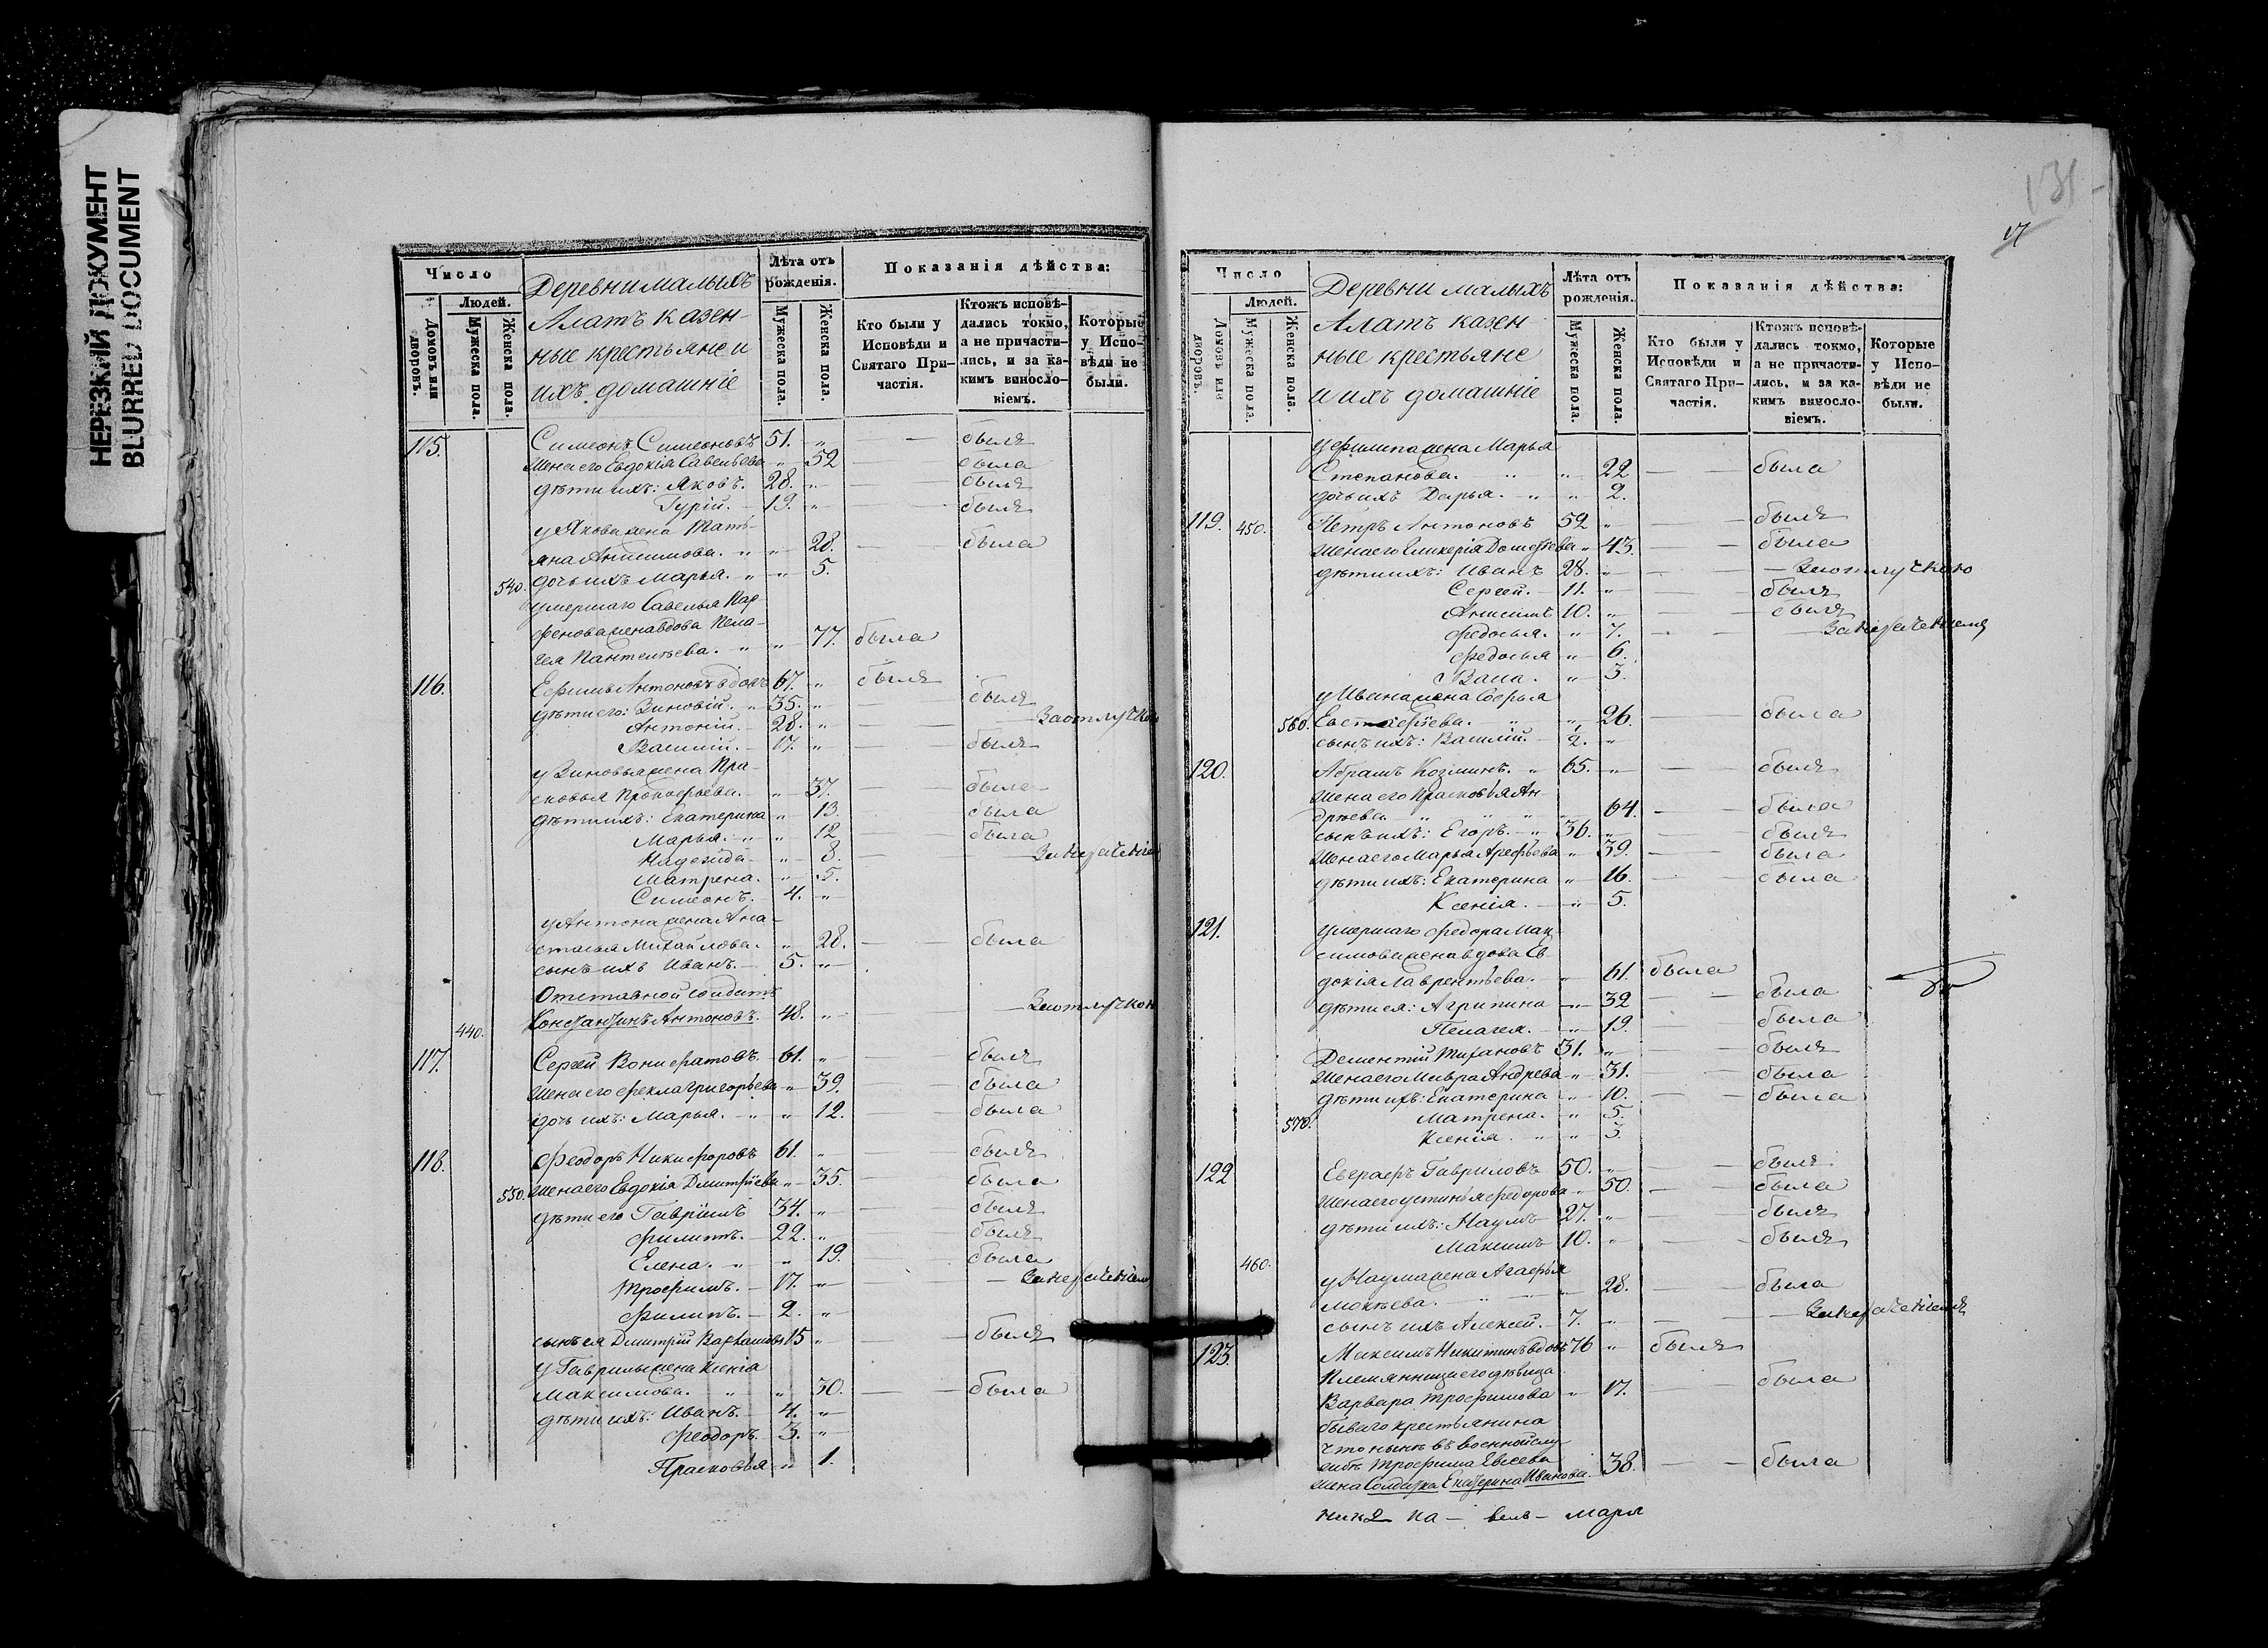 НЕРЕЗКИЙ ДОКУМЕНТ
BLURRED DOCUMENT
Число
Людей.
Домовъ или дворовъ.
Мужеска пола.
Женска пола.
Деревни малыхъ
Алатъ казен-
ные крестьяне и
ихъ домашніе
Лѣта отъ рожденія.
Мужеска пола.
Женска пола.
Показанія дѣйства:
Кто были у Исповѣди и Святаго При-частія.
Ктожъ исповѣ-дались токмо, а не причасти-лись, и за ка-кимъ винословіемъ.
Которые у Испо-вѣди не были.
115. Симеонъ Симеоновъ 51. „ былъ
Жена его Евдокія Савельева „ 52 была
дѣти ихъ: Яковъ. 28. „ былъ
Гурій. 19. „ былъ
у Якова жена Тать-
яна Анисимова. „ „ 28. была
540. дочь ихъ Марья. „ „ 5.
умершаго Савелья Пар-
фенова жена вдова Пела-
гея Пантелѣева. „ „ 77. была
116. Ефимъ Антоновъ вдовъ 67. „ былъ
дѣти его: Зиновій. „ 35. „ былъ
Антоній. 28. „ За отлучкою
Василій. 17. „ былъ
у Зиновья жена Пра-
сковья Прокофьева. „ 37. была
дѣти ихъ: Екатерина „ 13. была
Марья. „ „ 12 была
Надежда „ 8.
Матрена. „ 5.
Симеонъ. 4. „
у Антона жена Ана-
стасья Михайлова. „ 28. была
сынъ ихъ Иванъ. 5. „
Отставной солдатъ
440. Константинъ Антоновъ. 48. „ За отлучкой
117. Сергей Вонифатовъ. 61. „ былъ
Жена его Фекла Григорьева „ 39. была
дочь ихъ: Марья. „ „ 12. была
118. Феодоръ Никифоровъ 61. „ былъ
550. Жена его Евдокія Дмитріева „ 35. была
дѣти его Гавріилъ 34. „ былъ
Филиппъ. 22. „ былъ
Елена. „ „ 19. была
Трофимъ. 17. „
Филиппъ. 2. „
сынъ ея Дмитрій 15 „ былъ
у Гаврилы жена Ксенія
Максимова. „ „ 30. была
дѣти ихъ: Иванъ. 4. „
Феодоръ. 3. „
Прасковья „ 1.
131
17
Число
Людей.
Домовъ или дворовъ.
Мужеска пола.
Женска пола.
Деревни малыхъ
Алатъ казен-
ные крестьяне
и ихъ домашніе
Лѣта отъ рожденія.
Мужеска пола.
Женска пола.
Показанія дѣйства:
Кто были у Исповѣди и Святаго При-частія.
Ктожъ исповѣ-дались токмо, а не причасти-лись, и за ка-кимъ винословіемъ.
Которые у Испо-вѣди не были.
у Филипа жена Марья
Степанова. „ „ 22 была
дочь ихъ Дарья. „ „ 2.
119. 450. Петръ Антоновъ 52 „ былъ
Жена его Гликерія „ 43. была
дѣти ихъ: Иванъ 28. „ За отлучкою
Сергей. 11. „ былъ
Анисимъ 10. „ былъ
Федосья. „ 7.
Федосья „ 6.
Васса. „ 3.
у Ивана жена Софья
560. Евстафіева. „ „ 26. была
сынъ ихъ: Василій. 2. „
120. Абрамъ Козминъ. „ 65. „ былъ
Жена его Прасковья Ан-
дреева. „ „ „ „ 64. была
сынъ ихъ: Егоръ. „ 36. „ былъ
Жена его Марья Арефьева „ 39. была
дѣти ихъ: Екатерина „ 16. была
Ксенія. „ 5.
121. умершаго Федора Мак-
симова жена вдова Ев-
докія Лаврентьева. „ 61. была
дѣти ея: Агрипина „ 32 была
Пелагея. „ 19. была
Дементій 31. „ былъ
Жена его Мавра Андрева „ 31. была
дѣти ихъ: Екатерина „ 10. была
570. Матрена. „ 5.
Ксенія. „ „ 3.
122 Евграфъ Гавриловъ 50. „ былъ
Жена его Устинья Федорова „ 50. была
дѣти ихъ: Наумъ 27. „ былъ
Максимъ 10. „ былъ
460. у Наума жена Агафья
Мокѣева. „ „ 28. была
сынъ ихъ Алексей. 7. „
123. Максимъ Никитинъ вдовъ 76 „ былъ
Племянница его дѣвица
Варвара Трофимова „ 17. была
бываго крестьянина
что нынѣ въ военной слу-
жбѣ Трофима Евсеева
жена Солдатка Екатерина Иванова. 38. была